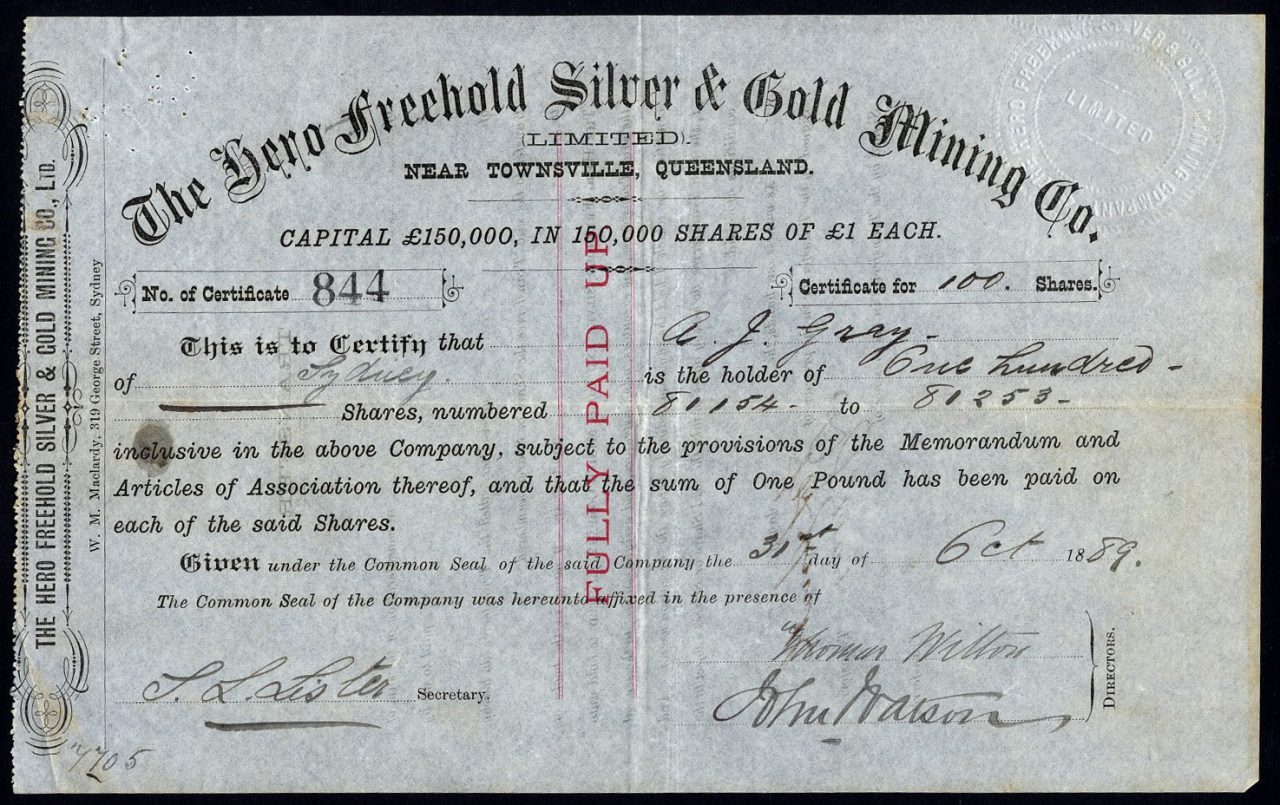 The Hero Freehold Silver & Gold Mining Co.
(LIMITED).
NEAR TOWNSVILLE, QUEENSLAND.
CAPITAL £150,000, IN 150,000 SHARES OF £1 EACH.
No. of Certificate 844 Certificate for 100. Shares.
This is to Certify that A. J. Gray.
of Sydney. is the holder of One hundred -
Shares, numbered 81154 - to 81253 -
inclusive in the above Company, subject to the provisions of the Memorandum and
Articles of Association thereof, and that the sum of One Pound has been paid on
each of the said Shares.
Given under the Common Seal of the said Company the 31st day of Oct 1889.
The Common Seal of the Company was hereunto affixed in the presence of
Thomas Wilton
S. L. Lister Secretary.
John Watson
DIRECTORS.
FULLY PAID UP
THE HERO FREEHOLD SILVER & GOLD MINING CO., LTD.
W. M. Maclardy, 319 George Street, Sydney
THE HERO FREEHOLD SILVER & GOLD MINING COMPANY
LIMITED
7705